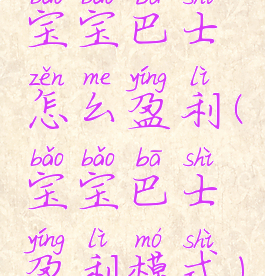 bǎo bǎo bā shì
宝宝巴士
zěn me yíng lì
怎么盈利(
bǎo bǎo bā shì
宝宝巴士
yíng lì mó shì
盈利模式)